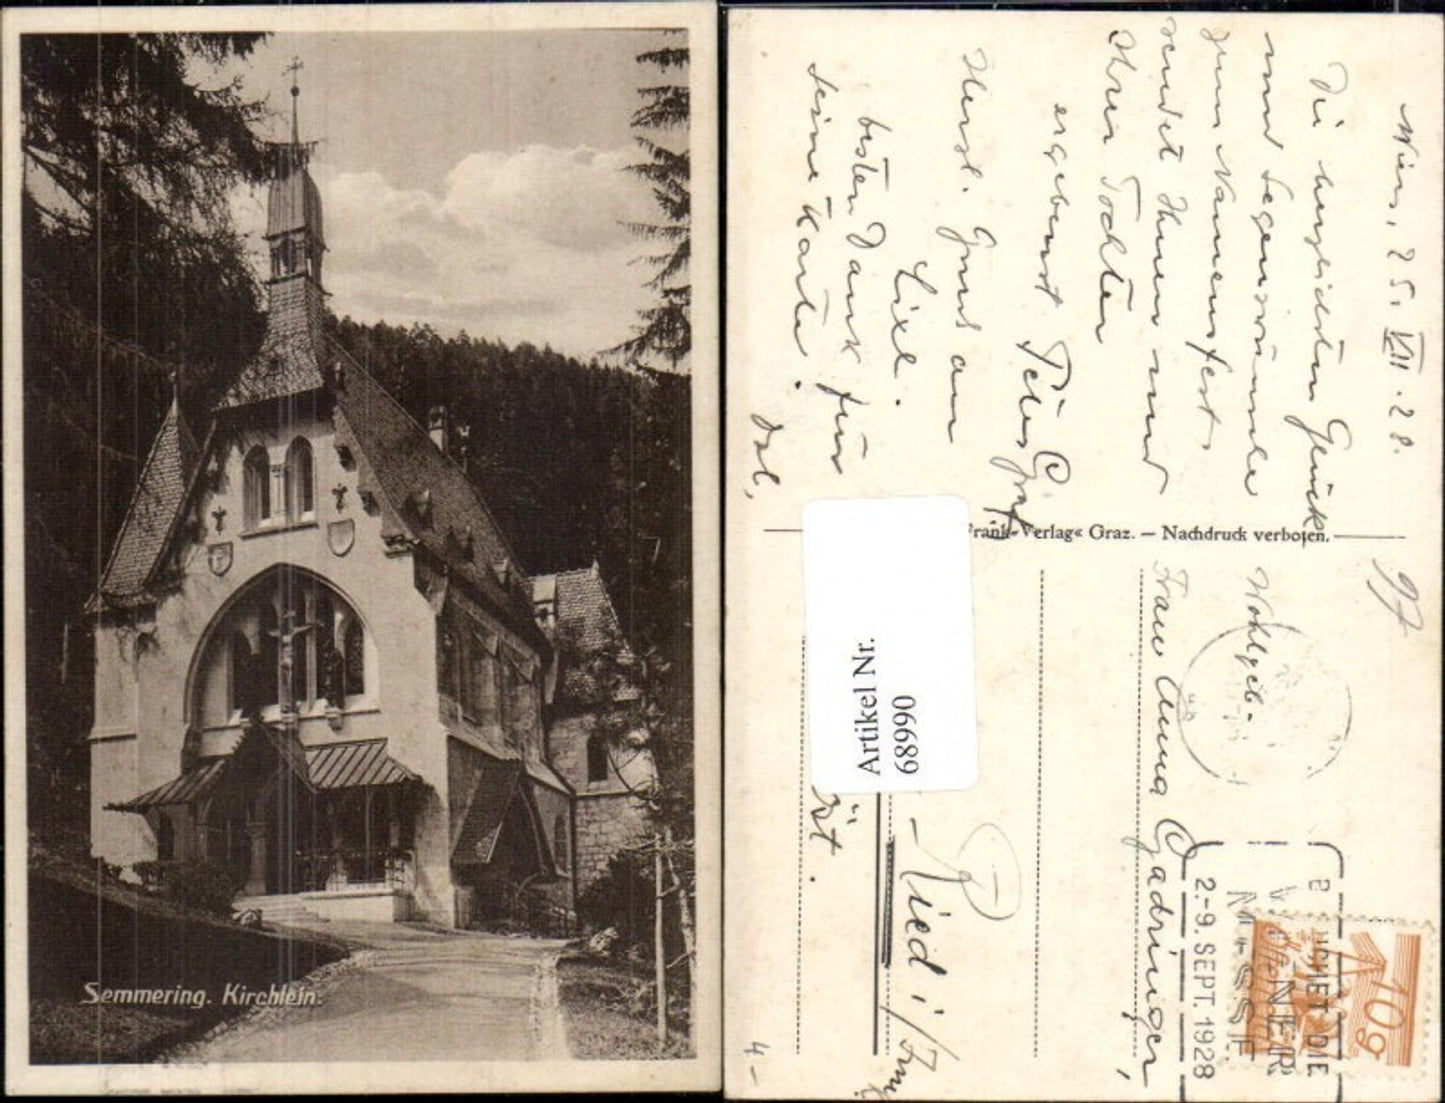 Semmering. Kirchlein.
Wien, 25. VII. 28.
Die herzlichsten Glück
und Segenswünsche
zum Namensfest
sendet Ihnen und
Ihrer Tochter
ergebenst
Herzl. Gruß an
beſten Dank für
seine Karte.
Frank-Verlag« Graz. — Nachdruck verboten.
97
Wohlgeb.
Frau Anna Gadringer,
Ried i/Innk
Öst.
Artikel Nr.
68990
4-
WIENER
MESSE
2.-9. SEPT. 1928
10g